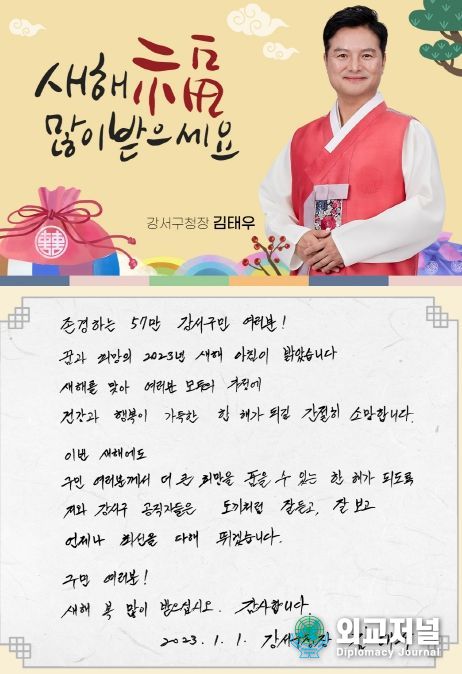 새해 福
많이 받으세요
강서구청장 김태우
존경하는 57만 강서구민 여러분!
꿈과 희망의 2023년 새해 아침이 밝았습니다
새해를 맞아 여러분 모두의 가정에
건강과 행복이 가득한 한 해가 되길 간절히 소망합니다.
이번 새해에도
구민 여러분께서 더 큰 희망을 품을 수 있는 한 해가 되도록
저와 강서구 공직자들은 토끼처럼 잘 듣고, 잘 보고
언제나 최선을 다해 뛰겠습니다.
구민 여러분!
새해 복 많이 받으십시오. 감사합니다.
2023. 1. 1. 강서구청장
외교저널
Diplomacy Journal